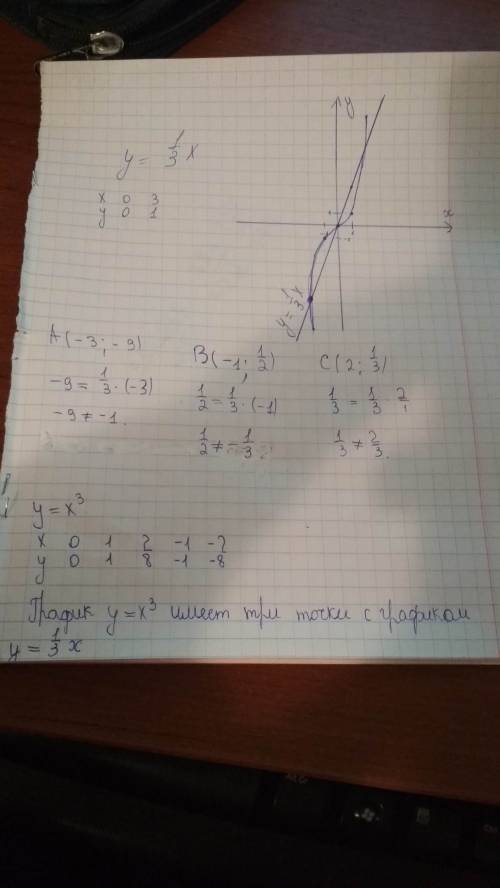 y = 1/3 x
x 0 3
y 0 1
y
x
y = 1/3 x
A(-3; -9)
-9 = 1/3 · (-3)
-9 ≠ -1.
B(-1; 1/2)
1/2 = 1/3 · (-1)
1/2 ≠ -1/3.
C(2; 1/3)
1/3 = 1/3 · 2/1
1/3 ≠ 2/3.
y = x³
x 0 1 2 -1 -2
y 0 1 8 -1 -8
График y = x³ имеет три точки с графиком
y = 1/3 x